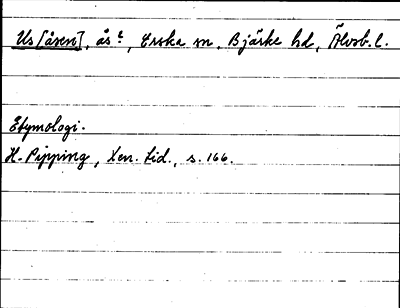 Us [åsen], ås t, Erska sn, Bjärke hd, Älvsb. l.
Etymologi.
H. Pipping, Xen. Lid., s. 166.